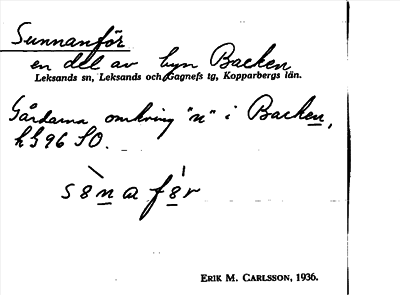 Sunnanför
en del av byn Backen
Leksands sn, Leksands och Gagnefs tg, Kopparbergs län.
Gårdarna omkring "n" i Backen,
h G 96 SO.
s8naf8r
ERIK M. CARLSSON, 1936.